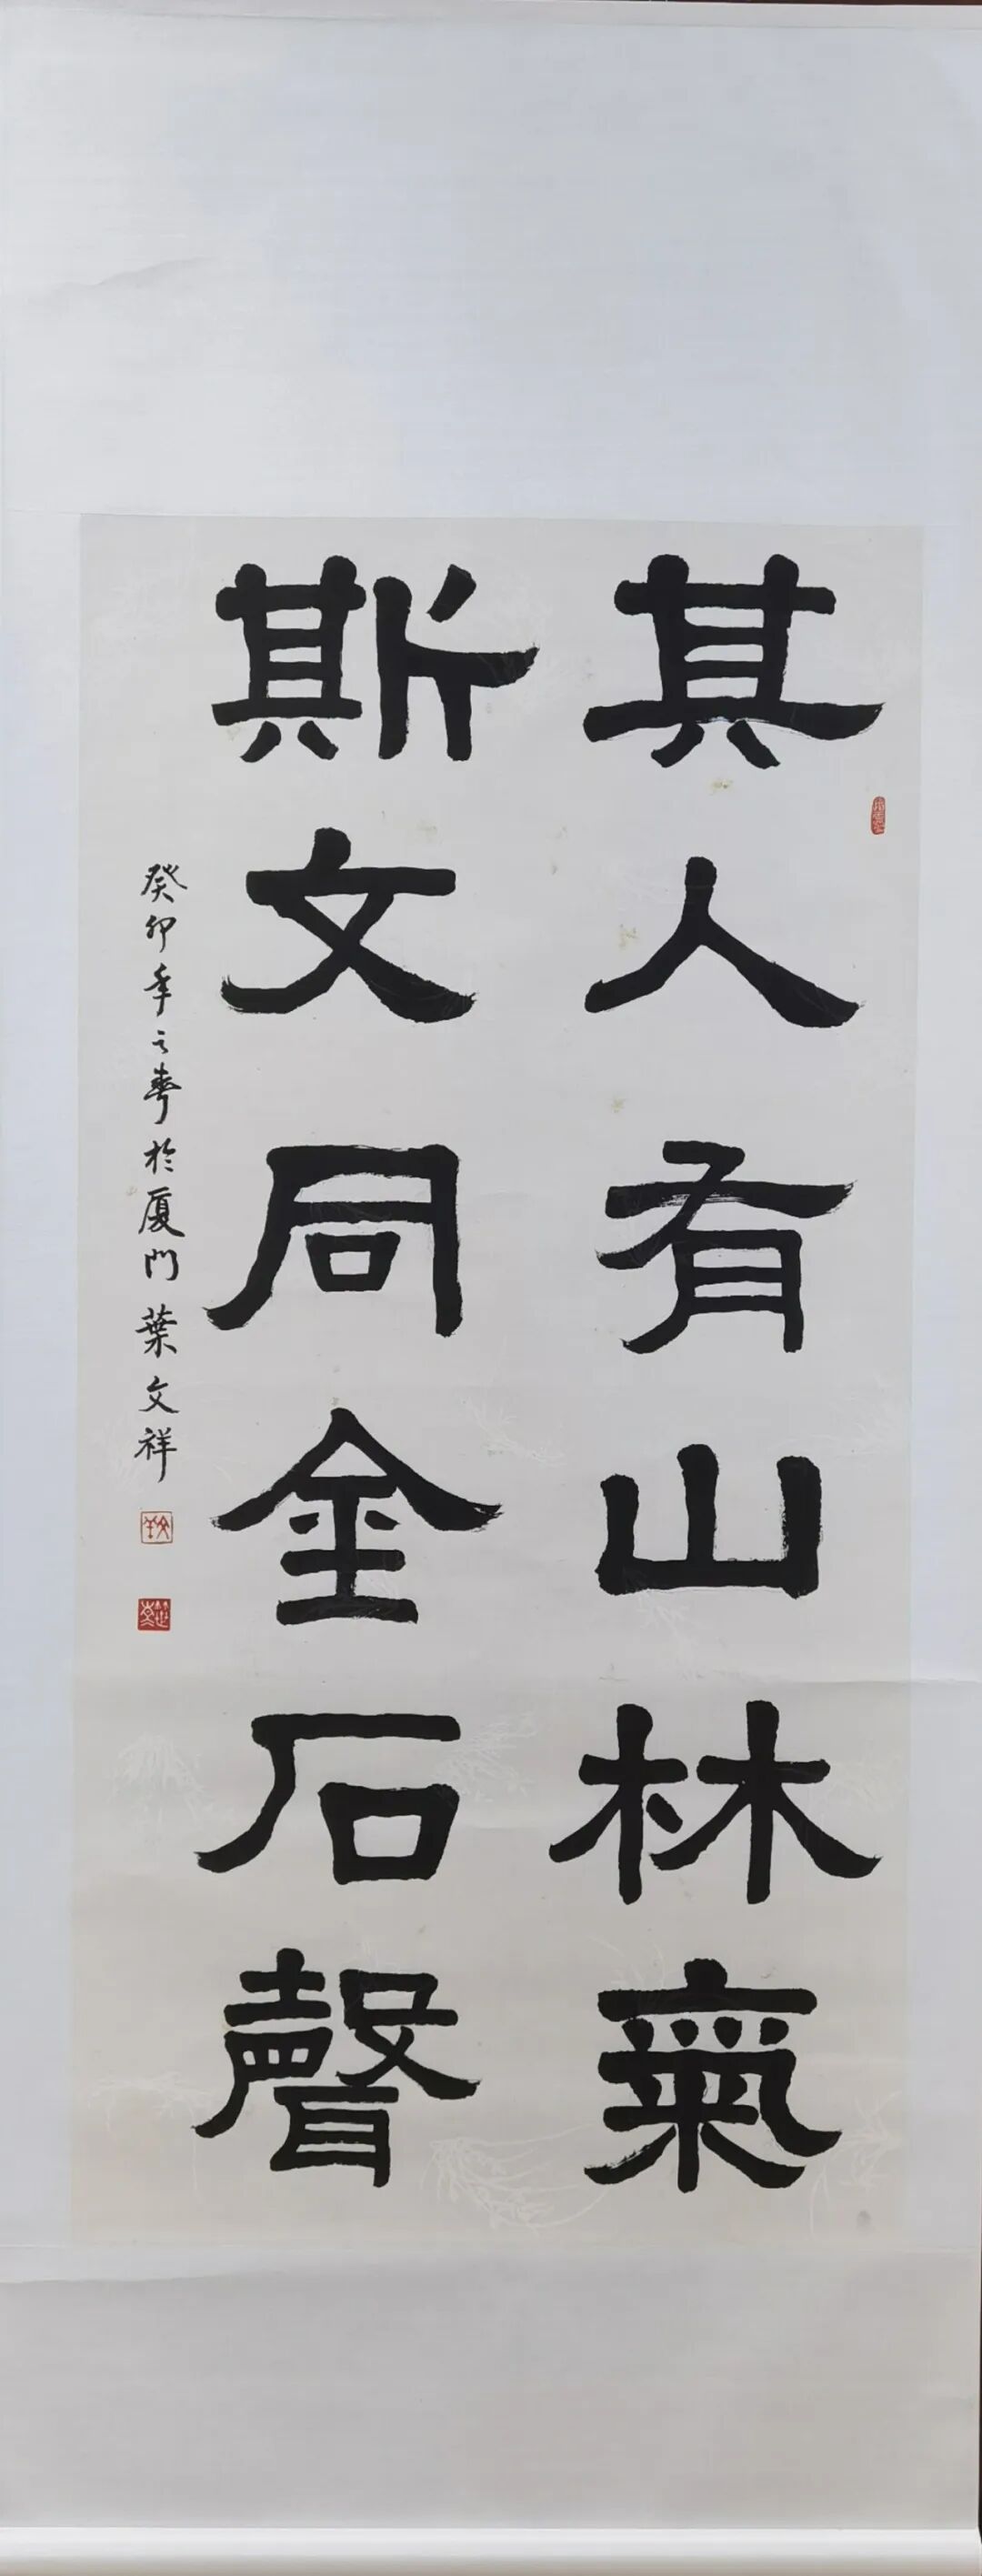 其人有山林氣
斯文同金石聲
癸卯年之春於厦門葉文祥